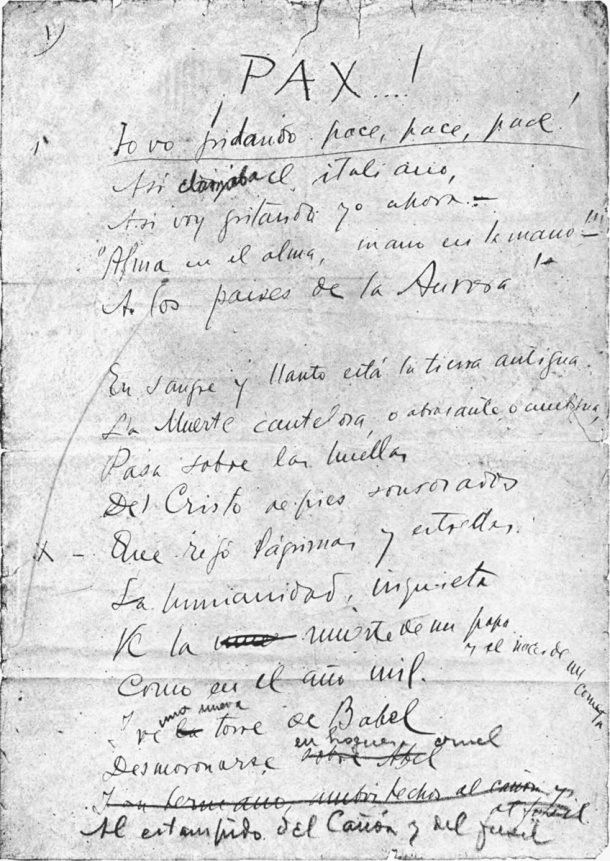 1)
PAX...!
Io vo gridando pace, pace, pace!
Así clamaba el italiano,
Así voy gritando yo ahora.—
"Alma en el alma, mano en la mano"—
A los países de la Aurora!..
En sangre y llanto está la tierra antigua.
La Muerte cautelosa, o abrasante o ambigua,
Pasa sobre las huellas
Del Cristo de pies sonrosados
X - Que regó lágrimas y estrellas.
La humanidad, inquieta
Ve la muerte de un papa
y el nacer de un cometa
Como en el año mil.
Y ve una nueva torre de Babel
Desmoronarse en hoguera cruel
sobre Abel
Y su hermano, al cañón y
al fusil
Al estampido del Cañón y del fusil